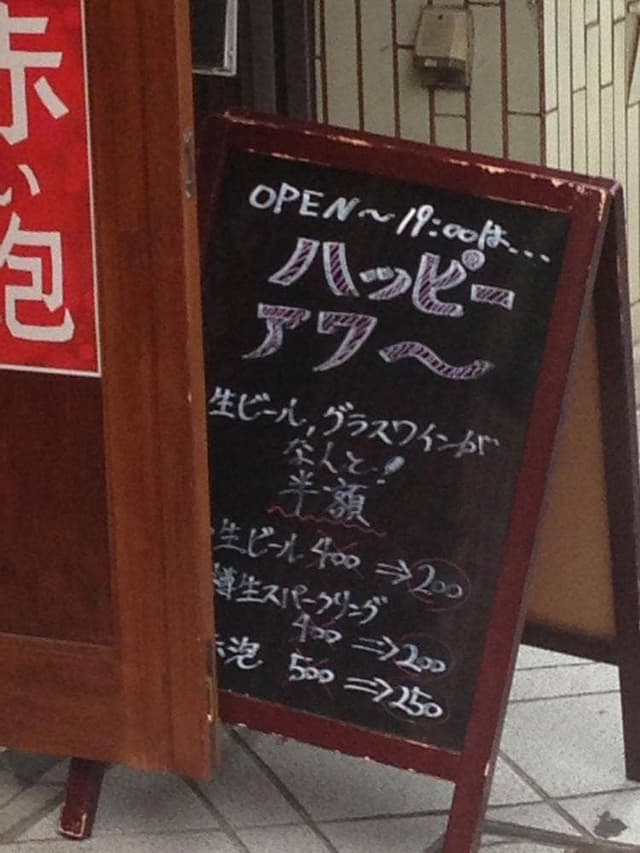 赤い泡
OPEN～19:00は...
ハッピー
アワ～
生ビール,グラスワインが
なんと!
半額
生ビール 400 ⇒ 200
樽生スパークリング
400 ⇒ 200
赤泡 500 ⇒ 250